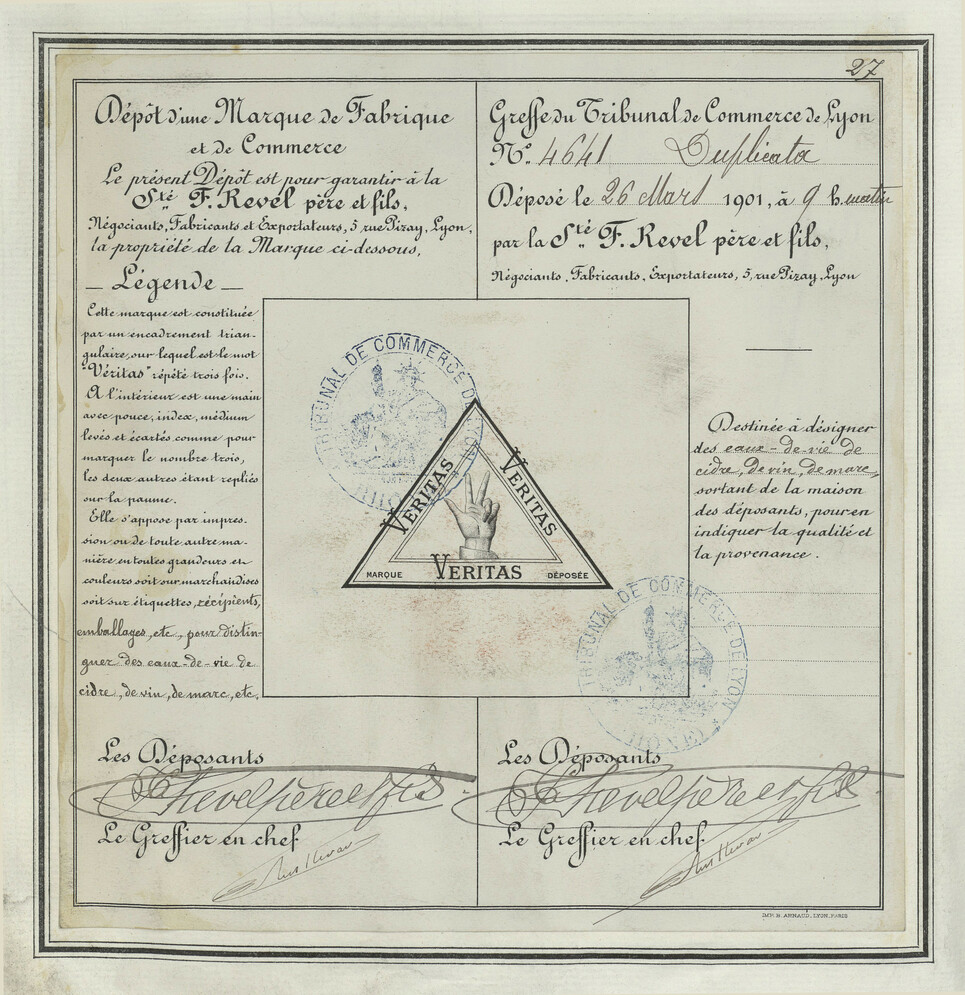 27
Dépôt d'une Marque de Fabrique
et de Commerce
Le présent Dépôt est pour garantir à la
Sté F. Revel père et fils,
Négociants, Fabricants et Exportateurs, 5 rue Pizay, Lyon,
la propriété de la Marque ci-dessous,
— Légende —
Cette marque est constituée
par un encadrement trian-
gulaire, sur lequel est le mot
"Véritas" répété trois fois.
A l'intérieur est une main
avec pouce, index, médium
levés et écartés comme pour
marquer le nombre trois,
les deux autres étant repliés
sur la paume.
Elle s'appose par impres-
sion ou de toute autre ma-
nière en toutes grandeurs et
couleurs soit sur marchandises
soit sur étiquettes, récipients,
emballages, etc., pour distin-
guer des eaux-de-vie de
cidre, de vin, de marc, etc.
Greffe du Tribunal de Commerce de Lyon
No. 4641 Duplicata
Déposé le 26 Mars 1901, à 9 h. matin
par la Sté F. Revel père et fils,
Négociants, Fabricants, Exportateurs, 5, rue Pizay, Lyon
TRIBUNAL DE COMMERCE DE LYON
VERITAS
VERITAS
MARQUE VERITAS DÉPOSÉE
Destinée à désigner
des eaux-de-vie de
cidre, de vin, de marc,
sortant de la maison
des déposants, pour en
indiquer la qualité et
la provenance.
TRIBUNAL DE COMMERCE DE LYON
Les Déposants
F. Revel père et fils
Le Greffier en chef
Les Déposants
F. Revel père et fils
Le Greffier en chef
IMP. B. ARNAUD, LYON, PARIS